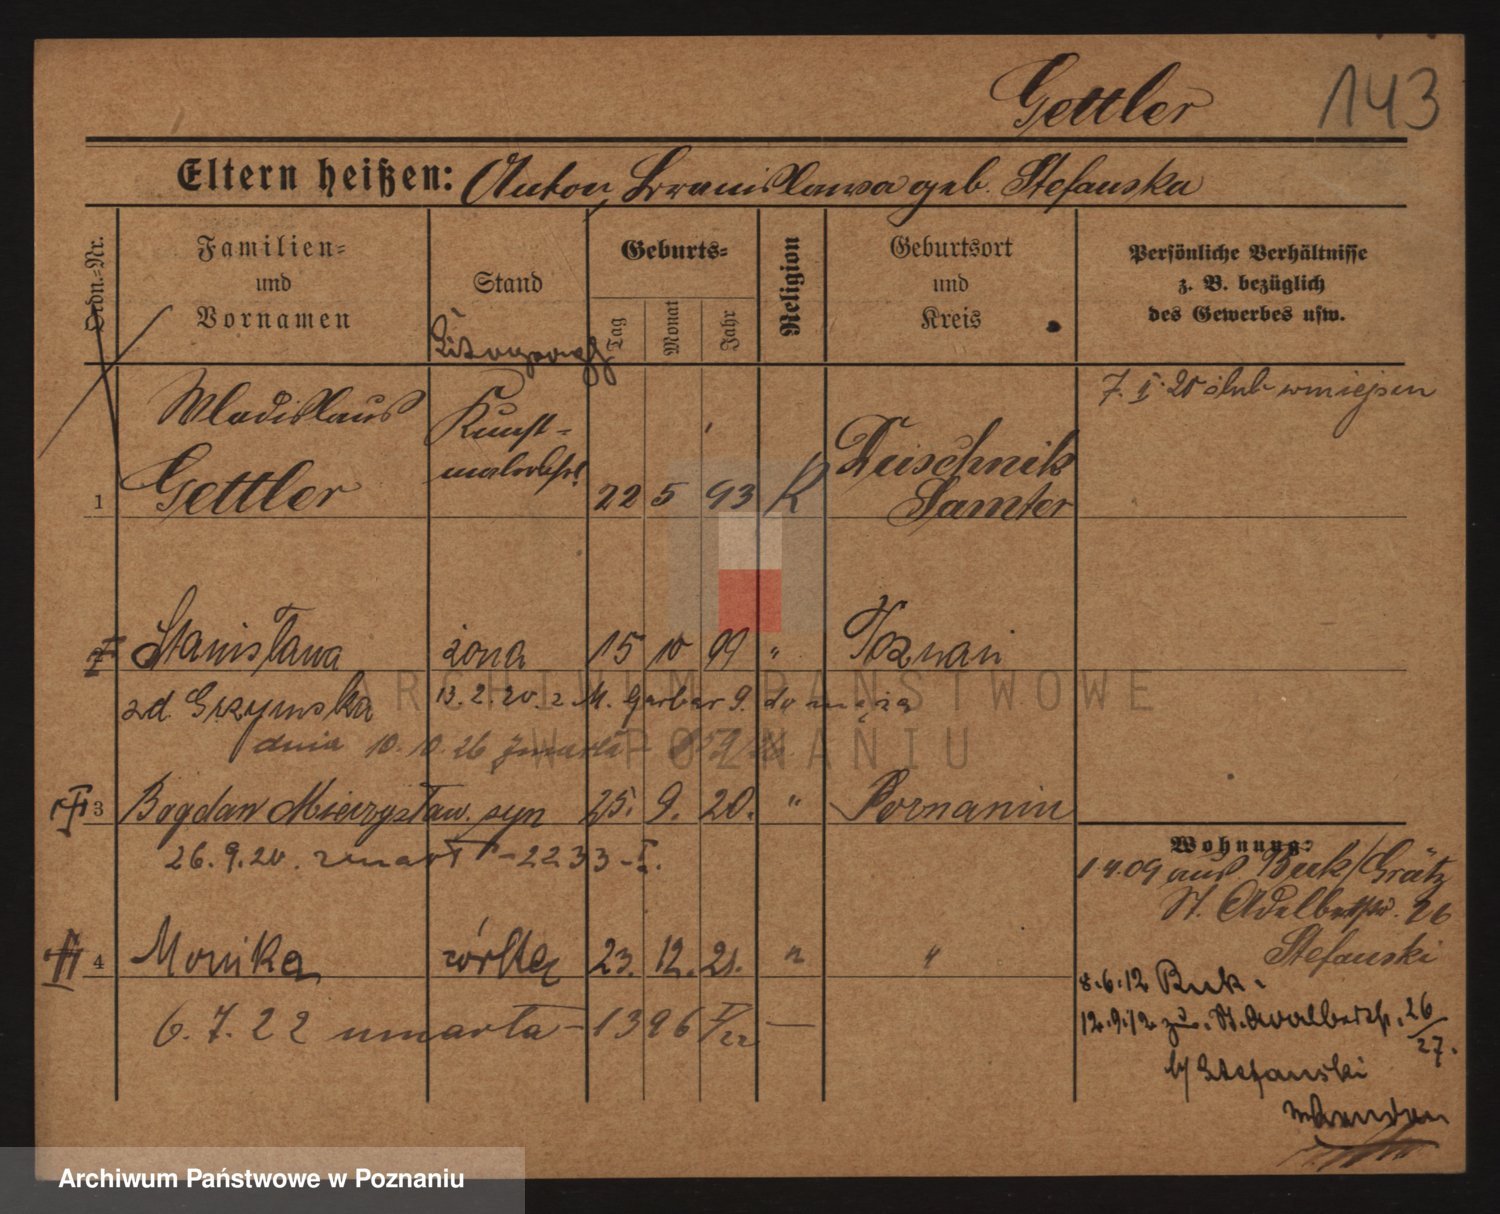 Gettler 143
Eltern heißen: Anton, Bronislawa geb. Stefanska
Ordn.-Nr.
Familien-
und
Vornamen
Stand
Geburts-
Tag
Monat
Jahr
Religion
Geburtsort
und
Kreis
Persönliche Verhältnisse
z. B. bezüglich
des Gewerbes usw.
Litograf
7. II. 20 ślub w miejscu
Wladislaus Kunst-
1 Gettler malerlehrl 22 5 93 K Duschnik
Samter
2 Stanisława żona 15 10 99 " Poznań
zd. Grzymska 13.2.20. z M. Garbar 9. do męża
dnia 10. 10. 26 zmarła
3 Bogdan Mieczysław. syn 25. 9. 20. " Poznaniu
26. 9. 20. zmarł - 2233 - I.
4 Monika córka 23. 12. 21. " "
6. 7. 22 umarła - 1396 I/22 —
Wohnung:
1.4.09 aus Buk/Grätz
St. Adalbertstr. 26
Stefanski
8.6.12 Buk.
12.9.12 zu. St. Adalbertstr. 26/27.
b/ Stefanski
ARCHIWUM PAŃSTWOWE
W POZNANIU
Archiwum Państwowe w Poznaniu